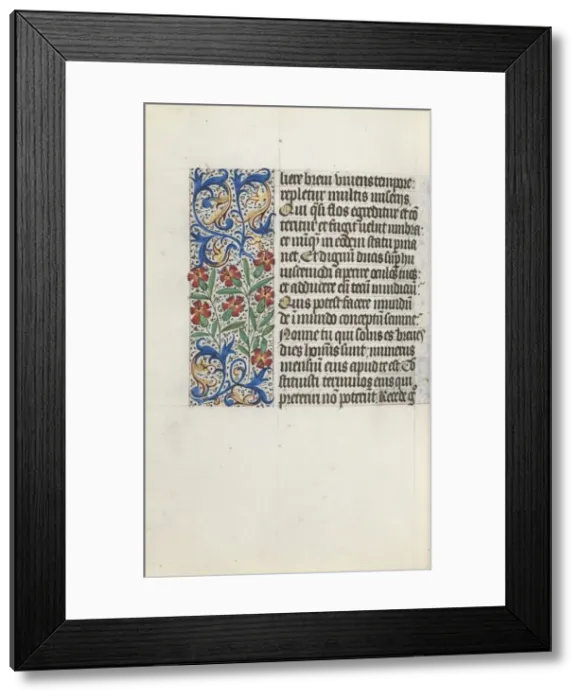 liere breui viuens tempore:
repletur multis miserijs.
Qui q̃si flos egreditur et cõ
teritur et fugit velut umbra:
et nũq̃ in eodem statu pma
net. Et dignũ ducis sup hu
iuscemodi aperire oculos tuos:
et adducere eũ tecũ in iudiciũ:
Quis potest facere mundũ
de ĩmundo conceptũ semine:
Nonne tu qui solus es breues
dies hominis sunt: numerus
mensiũ eius apud te est Cõ
stituisti terminos eius qui
preteriri nõ poterũt Recede g̃